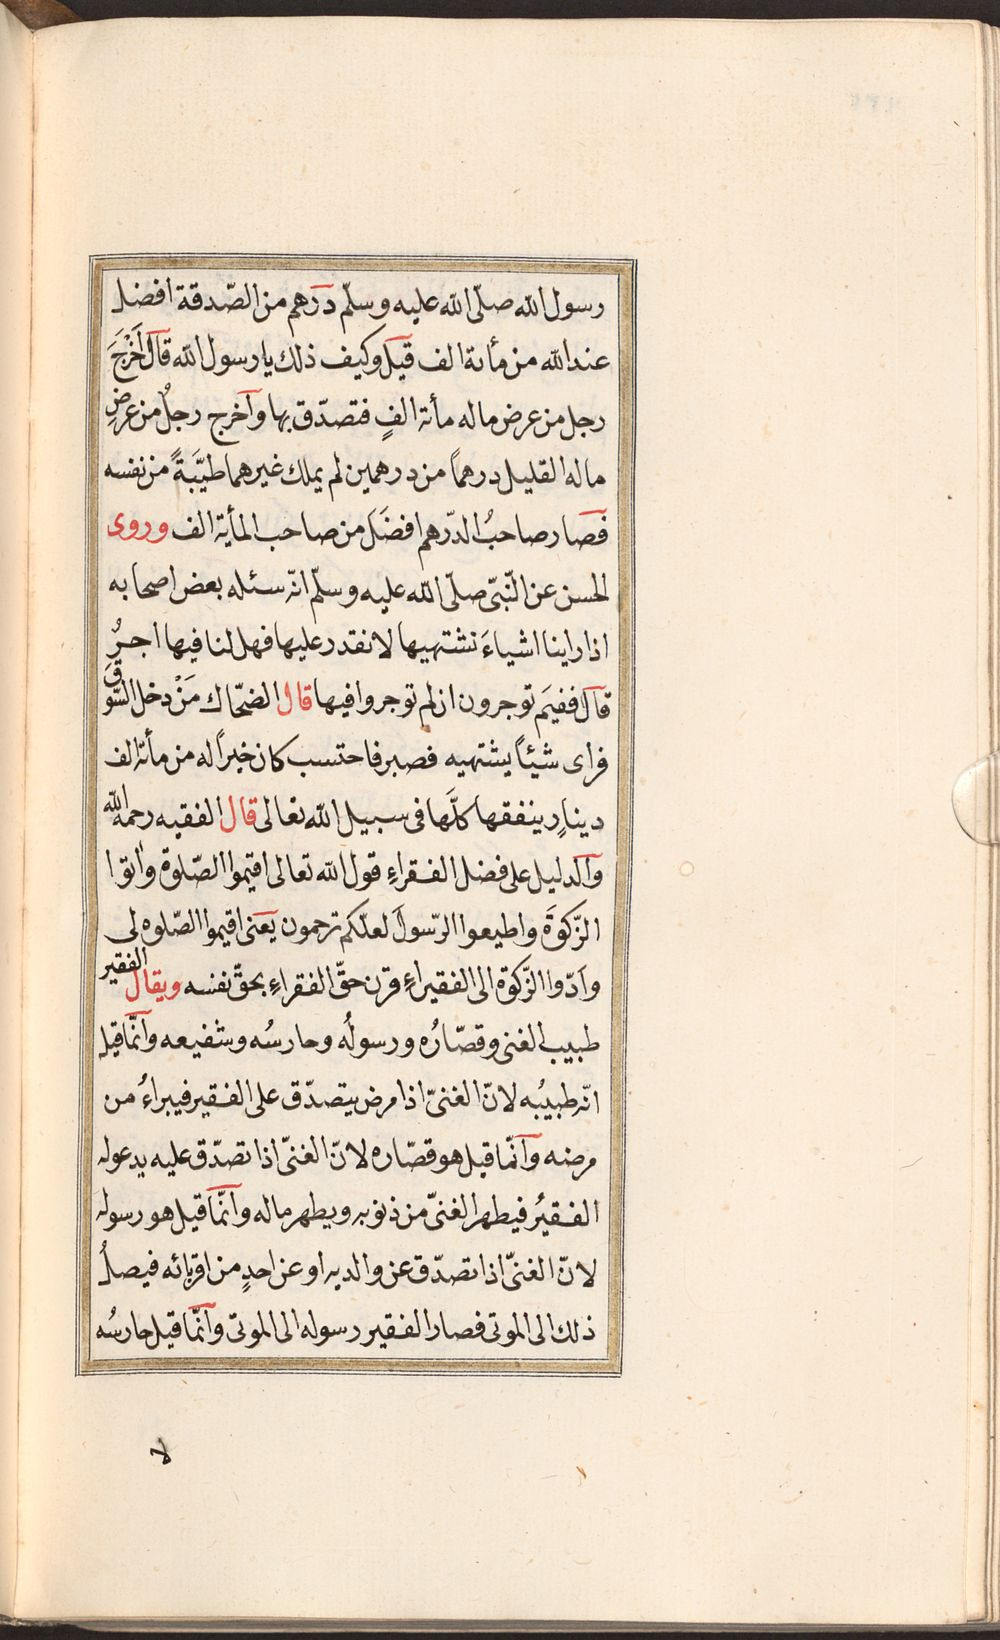 رسول الله صلّى الله عليه وسلّم درهم من الصّدقة افضل
عند الله من مأئة الف قيل وكيف ذلك يا رسول الله قال اَخْرَجَ
رجل من عرض ماله مأئة الفٍ فتصدّق بها وآخرج رجلٌ من عرضِ
ماله القليل درهماً من درهمين لم يملك غيرهما طيّبَةً من نفسه
فصار صاحبُ الدّرهم افضَل من صاحب المأية الف وروى
الحسن عن النّبىّ صلّى الله عليه وسلّم انّه سئله بعض اصحابه
اذا راينا اشياءَ نشتهيها لا نقدر عليها فهل لنا فيها اجرٌ
قال ففيَم توجرون ان لم توجروا فيها قال الضحّاك مَنْ دخل السّوقَ
فراى شيئاً يشتهيه فصبر فاحتسب كان خيراً له من مأئة الف
دينارٍ ينفقها كلَّها فى سبيل الله تعالى قال الفقيه رحمه الله
والدليل على فضل الفقراءِ قول الله تعالى اقيموا الصّلوة واٰتوا
الزّكوَة واطيعوا الرّسولَ لعلّكم ترحمون يعنى اقيموا الصّلوه لى
وادّوا الزّكوة الى الفقيراءِ قرن حقّ الفقراءِ بحقّ نفسه ويقال الفقير
طبيب الغنى وقصّارُه ورسولُه وحارسُه وشفيعه وانّما قيل
انّه طبيبُه لانّ الغنىّ اذا مرض يتصدّق على الفقير فيبراءُ من
مرضه وانّما قيل هو قصّاره لانّ الغنىّ اذا تصدّق عليه يدعو له
الفقيرُ فيطهر الغنىّ من ذنوبه ويطهر ماله وانّما قيل هو رسوله
لانّ الغنىّ اذا تصدّق عن والديه او عن احدٍ من اقربائه فيصلُ
ذلك الى الموتى فصار الفقير رسوله الى الموتى وانّما قيل حارسُه
لا